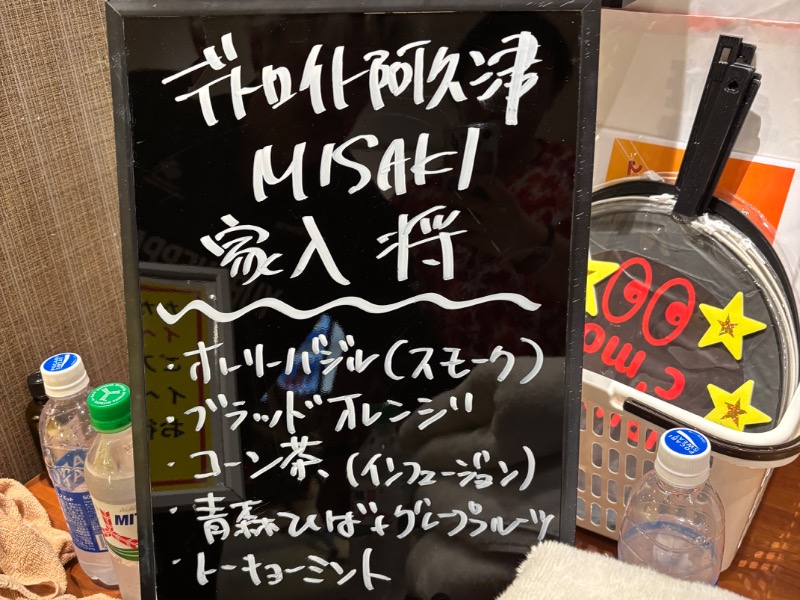 デトロイト阿久津
MISAKI
家入 将
・ホーリーバジル(スモーク)
・ブラッドオレンジ
・コーン茶、(インフュージョン)
・青森ひば+グレープフルーツ
・トーキョーミント
c'mo
POCARI SWEAT
MIT